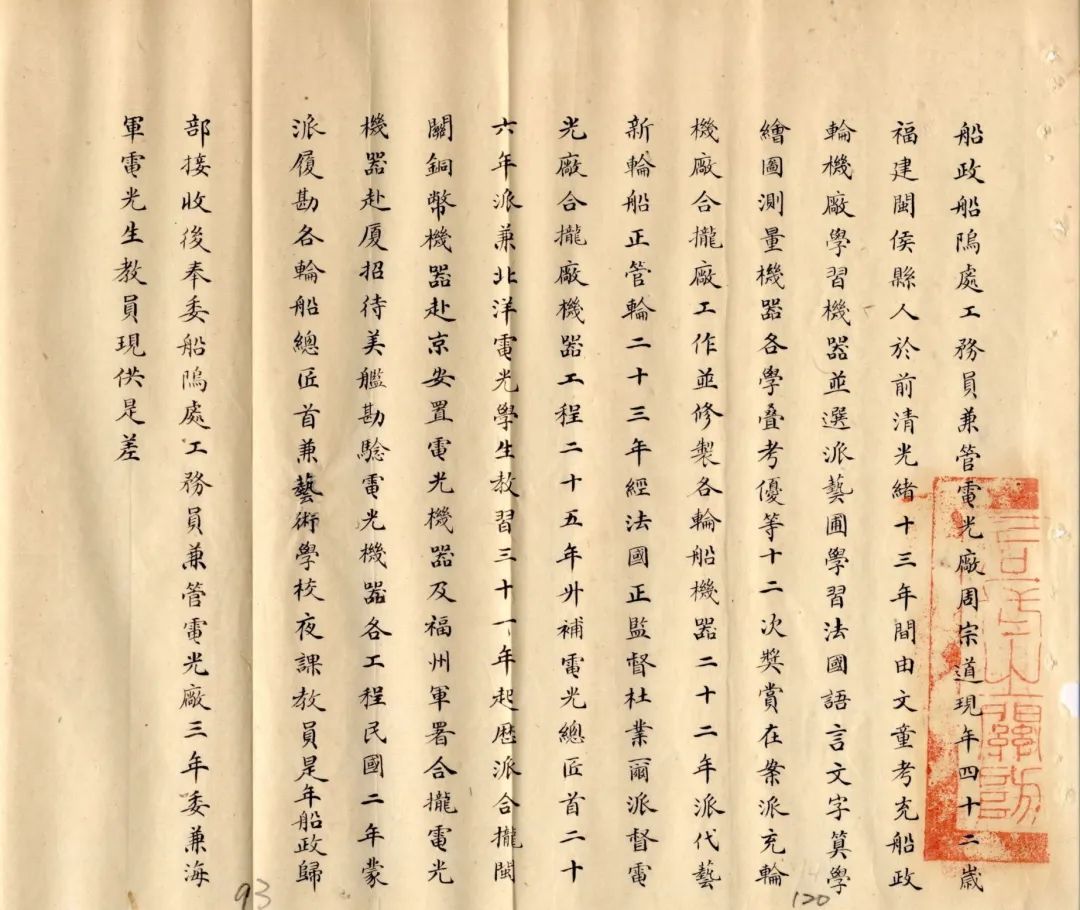 船政船隝處工務員兼管電光廠周宗道現年四十二歲
福建閩侯縣人於前清光緒十三年間由文童考充船政
輪機廠學習機器並選派藝圃學習法國語言文字算學
繪圖測量機器各學叠考優等十二次奬賞在案派充輪
機廠合攏廠工作並修製各輪船機器二十二年派代藝
新輪船正管輪二十三年經法國正監督杜業爾派督電
光廠合攏廠機器工程二十五年升補電光總匠首二十
六年派兼北洋電光學生教習三十一年起歷派合攏閩
關銅幣機器赴京安置電光機器及福州軍署合攏電光
機器赴厦招待美艦勘驗電光機器各工程民國二年蒙
派履勘各輪船總匠首兼藝術學校夜課教員是年船政歸
部接收後奉委船隝處工務員兼管電光廠三年委兼海
軍電光生教員現供是差
120
93